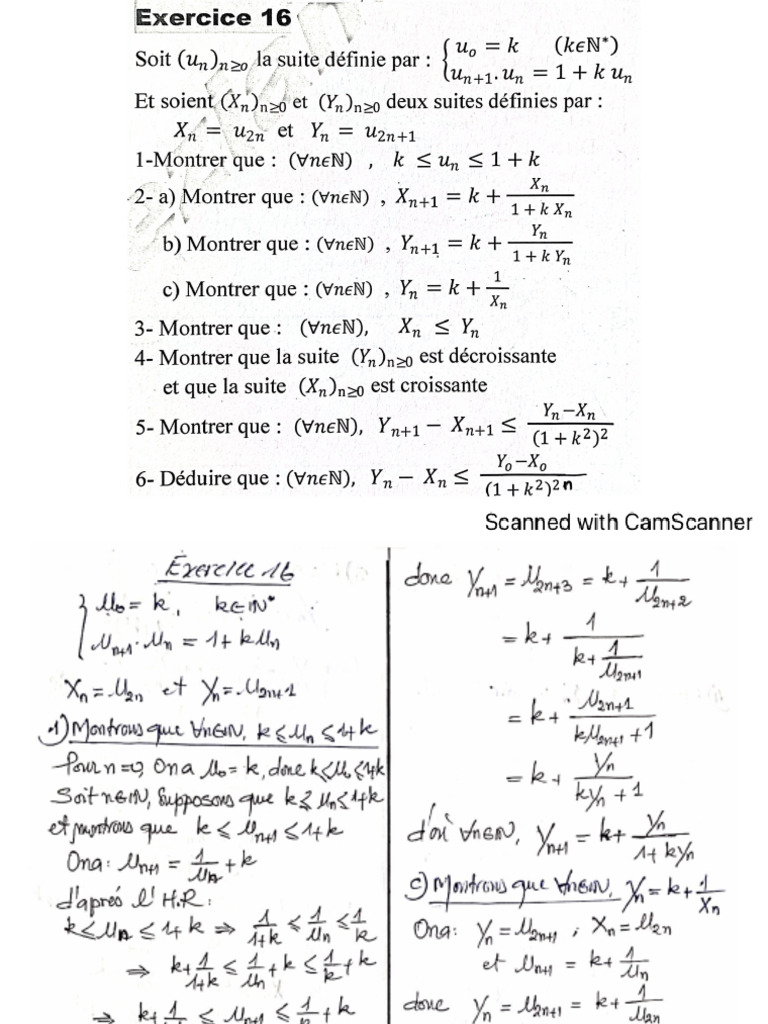 Exercice 16
Soit (uₙ)ₙ≥₀ la suite définie par : { u₀ = k (k∈ℕ*)
uₙ₊₁.uₙ = 1 + k uₙ
Et soient (Xₙ)ₙ≥₀ et (Yₙ)ₙ≥₀ deux suites définies par :
Xₙ = u₂ₙ et Yₙ = u₂ₙ₊₁
1-Montrer que : (∀n∈ℕ) , k ≤ uₙ ≤ 1 + k
2- a) Montrer que : (∀n∈ℕ) , Xₙ₊₁ = k + Xₙ/(1 + k Xₙ)
b) Montrer que : (∀n∈ℕ) , Yₙ₊₁ = k + Yₙ/(1 + k Yₙ)
c) Montrer que : (∀n∈ℕ) , Yₙ = k + 1/Xₙ
3- Montrer que : (∀n∈ℕ), Xₙ ≤ Yₙ
4- Montrer que la suite (Yₙ)ₙ≥₀ est décroissante
et que la suite (Xₙ)ₙ≥₀ est croissante
5- Montrer que : (∀n∈ℕ), Yₙ₊₁ − Xₙ₊₁ ≤ (Yₙ−Xₙ)/(1 + k²)²
6- Déduire que : (∀n∈ℕ), Yₙ − Xₙ ≤ (Y₀−X₀)/(1 + k²)²ⁿ
Scanned with CamScanner
Exercice 16
{ u₀ = k, k∈ℕ*
uₙ₊₁.uₙ = 1+kuₙ
Xₙ = u₂ₙ et Yₙ = u₂ₙ₊₁
1) Montrons que ∀n∈ℕ, k ≤ uₙ ≤ 1+k
Pour n=0, On a u₀ = k, donc k ≤ u₀ ≤ 1+k
Soit n∈ℕ, Supposons que k ≤ uₙ ≤ 1+k
et montrons que k ≤ uₙ₊₁ ≤ 1+k
Ona: uₙ₊₁ = 1/uₙ + k
d'aprés l'H.R:
k ≤ uₙ ≤ 1+k ⇒ 1/(1+k) ≤ 1/uₙ ≤ 1/k
⇒ k+1/(1+k) ≤ 1/uₙ + k ≤ 1/k + k
⇒ k+1/(1+k) ≤ uₙ₊₁ ≤ 1/k + k
donc Yₙ₊₁ = u₂ₙ₊₃ = k + 1/u₂ₙ₊₂
= k + 1/(k + 1/u₂ₙ₊₁)
= k + u₂ₙ₊₁/(ku₂ₙ₊₁ + 1)
= k + Yₙ/(kYₙ + 1)
d'où ∀n∈ℕ, Yₙ₊₁ = k + Yₙ/(1 + kYₙ)
c) Montrons que ∀n∈ℕ, Yₙ = k + 1/Xₙ
Ona: Yₙ = u₂ₙ₊₁ ; Xₙ = u₂ₙ
et uₙ₊₁ = k + 1/uₙ
donc Yₙ = u₂ₙ₊₁ = k + 1/u₂ₙ